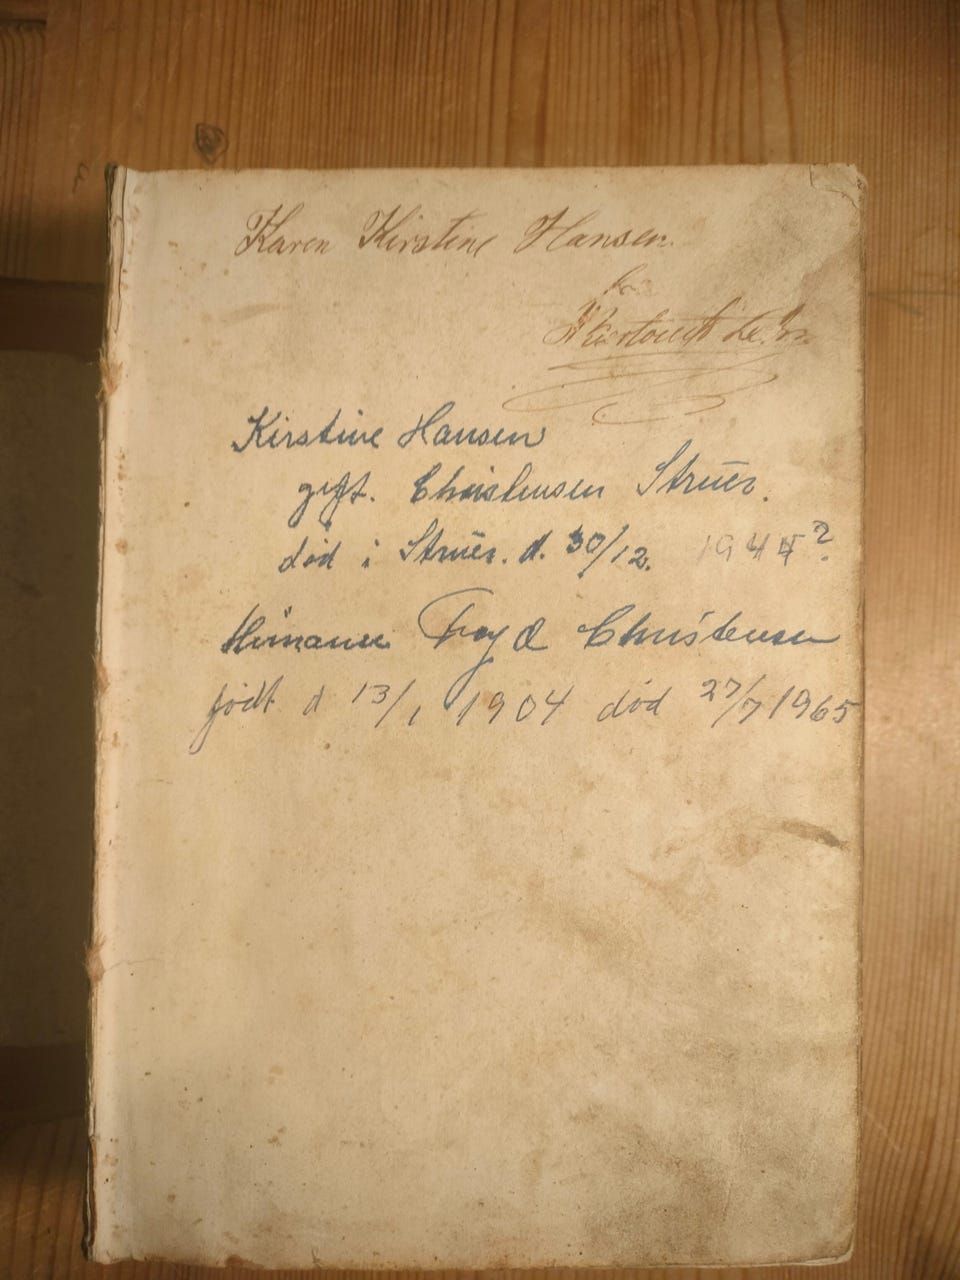 Karen Kirstine Hansen.
Kirstine Hansen
gift. Christensen Struer.
død i Struer. d. 30/12. 194 ?
Christensen
født d 13/1 1904 død 27/7 1965